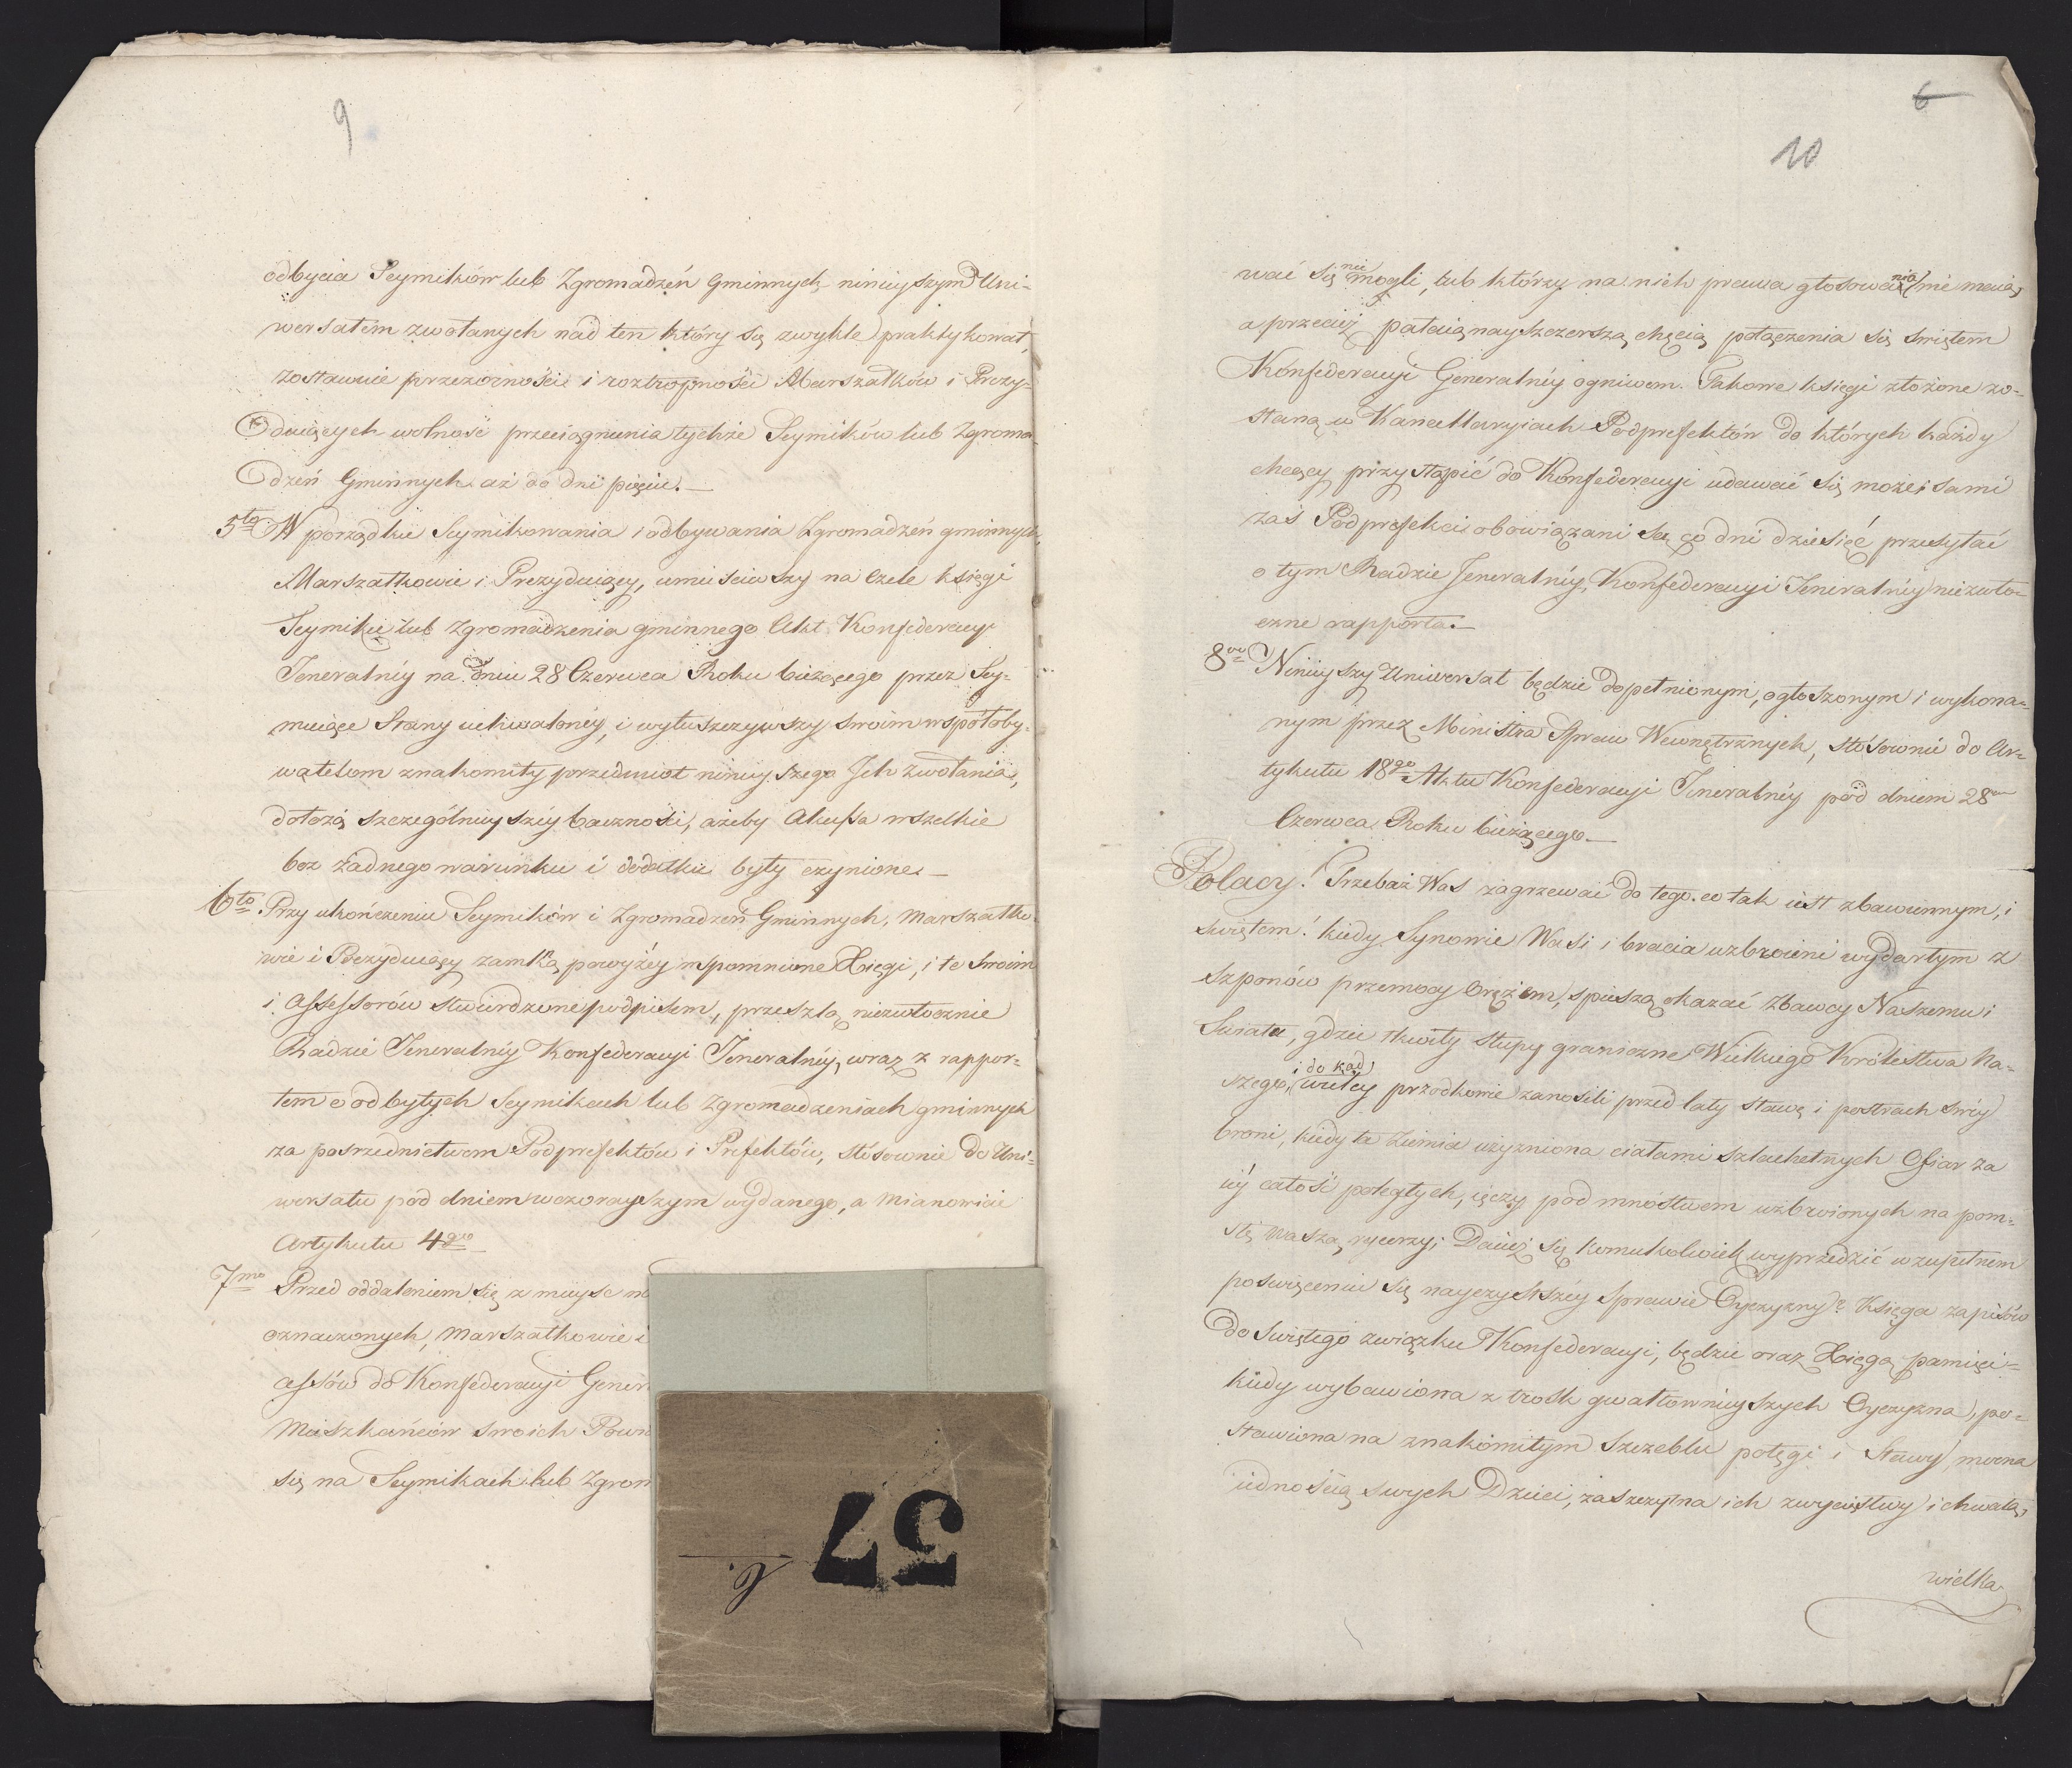 9
odbycia Seymików lub Zgromadzeń Gminnych ninieyszym Uni-
wersałem zwołanych nad ten który się zwykle praktykował,
zostawuie przezorności i roztropności Marszałków i Prezy-
duiących wolność przeciągnienia tychże Seymików lub Zgroma-
dzeń Gminnych aż do dni pięciu.
5to W porządku Seymikowania i odbywania Zgromadzeń gminnych,
Marszałkowie i Prezyduiący, umieściwszy na Czele księgi
Seymiku lub Zgromadzenia gminnego Akt Konfederacyi
Jeneralnéy na dniu 28 Czerwca Roku bieżącego przez Sey-
muiące Stany uchwalonéy, i wyłuszczywszy swoim współoby-
watelom znakomity przedmiot ninieyszego Ich zwołania,
dołożą szczególnieyszéy baczności, ażeby Akcessa wszelkie
bez żadnego warunku i dodatku były czynione.
6to Przy ukończeniu Seymików i Zgromadzeń Gminnych, Marszałko-
wie i Prezyduiący zamkną powyżéy wspomnione Xięgi, i te swoim
i Assessorów stwierdzone podpisem, prześzlą niezwłocznie
Radzie Jeneralnéy Konfederacyi Jeneralnéy, wraz z rappor-
tem o odbytych Seymikach lub Zgromadzeniach gminnych
za pośrednictwem Podprefektów i Prefektów, stósownie do Uni-
wersału pod dniem wczorayszym wydanego, a mianowicie
Artykułu 4go
7mo Przed oddaleniem się z mieysc
oznaczonych, Marszałkowie i
cessów do Konfederacyi Gener
Mieszkańców swoich Powi
się na Seymikach lub Zgrom
57
6
10
wać się nie mogli, lub którzy na nich prawa głosowania nie maią,
a przecież pałaią nayszczerszą chęcią połączenia się świętem
Konfederacyi Generalnéy ogniwem. Takowe księgi złożone zo-
staną w Kancellaryiach Podprefektów do których każdy
chcący przystąpić do Konfederacyi udawać się może; sami
zaś Podprefekci obowiązani są co dni dziesięć przesyłać
o tym Radzie Jeneralnéy Konfederacyi Jeneralnéy niezwło-
czne rapporta.
8vo Ninieyszy Uniwersał będzie dopełnionym, ogłoszonym i wykona-
nym przez Ministra Spraw Wewnętrznych, stósownie do Ar-
tykułu 18go Aktu Konfederacyi Jeneralnéy pod dniem 28m
Czerwca Roku bieżącego.
Polacy! Trzebaż Was zagrzewać do tego. co tak iest zbawiennym, i
świętem! kiedy Synowie Wasi i bracia uzbroieni wydartym z
szponów przemocy Orężem, spieszą okazać Zbawcy Naszemu i
Świata, gdzie tkwiły słupy graniczne Wielkiego Królestwa Na-
szego, i dokąd wielcy przodkowie zanosili przed laty sławę i postrach swéy
broni, kiedy ta Ziemia użyzniona ciałami szlachetnych Ofiar za
iéy całość poległych, ięczy pod mnóstwem uzbroionych na pom-
stę waszą rycerzy; Dacież się komukolwiek wyprzedzić w zupełnem
poświęceniu się nayczystszéy Sprawie Oyczyzny? Księga zapisów
do świętego związku Konfederacyi, będzie oraz Xięgą pamięci-
kiedy wybawiona z trosk gwałtownieyszych Oyczyzna, po-
stawiona na znakomitym Szczeblu potęgi i Sławy, mocna
iednością swych Dzieci, zaszczytna ich zwycięstwy i chwałą,
wielka